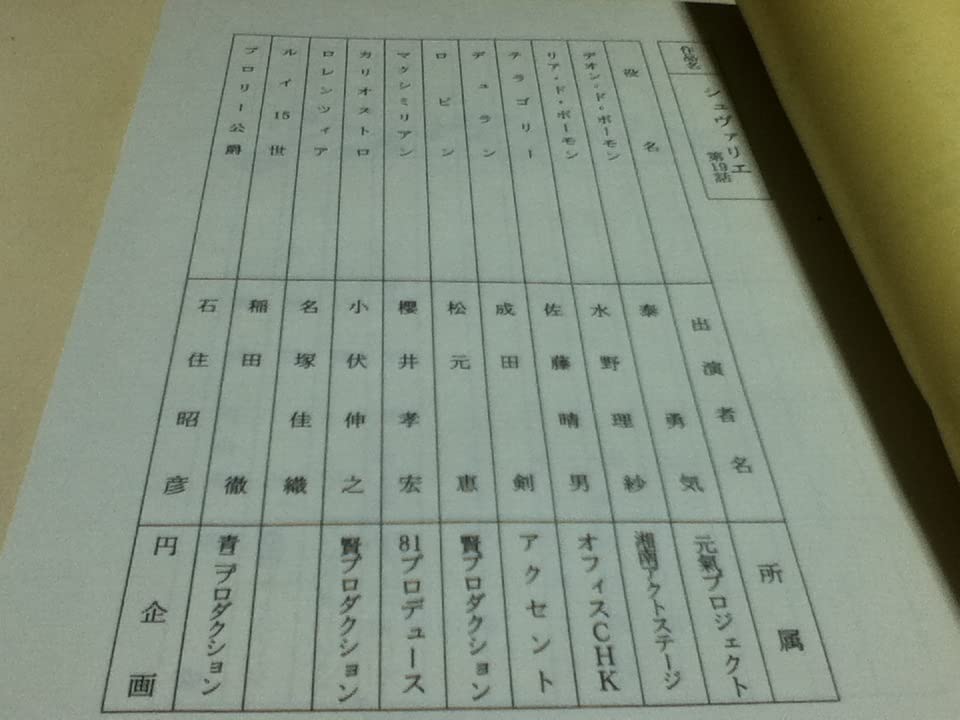 作品名 シュヴァリエ 第19話
役名 出演者名 所属
デオン・ド・ボーモン 泰勇気 元氣プロジェクト
リア・ド・ボーモン 水野理紗 湘南アクトステージ
テラゴリー 佐藤晴男 オフィスCHK
デュラン 成田剣 アクセント
ロビン 松元恵 賢プロダクション
マクシミリアン 櫻井孝宏 81プロデュース
カリオストロ 小伏伸之 賢プロダクション
ロレンツィア 名塚佳織
ルイ15世 稲田徹 青二プロダクション
ブロリー公爵 石住昭彦 円企画